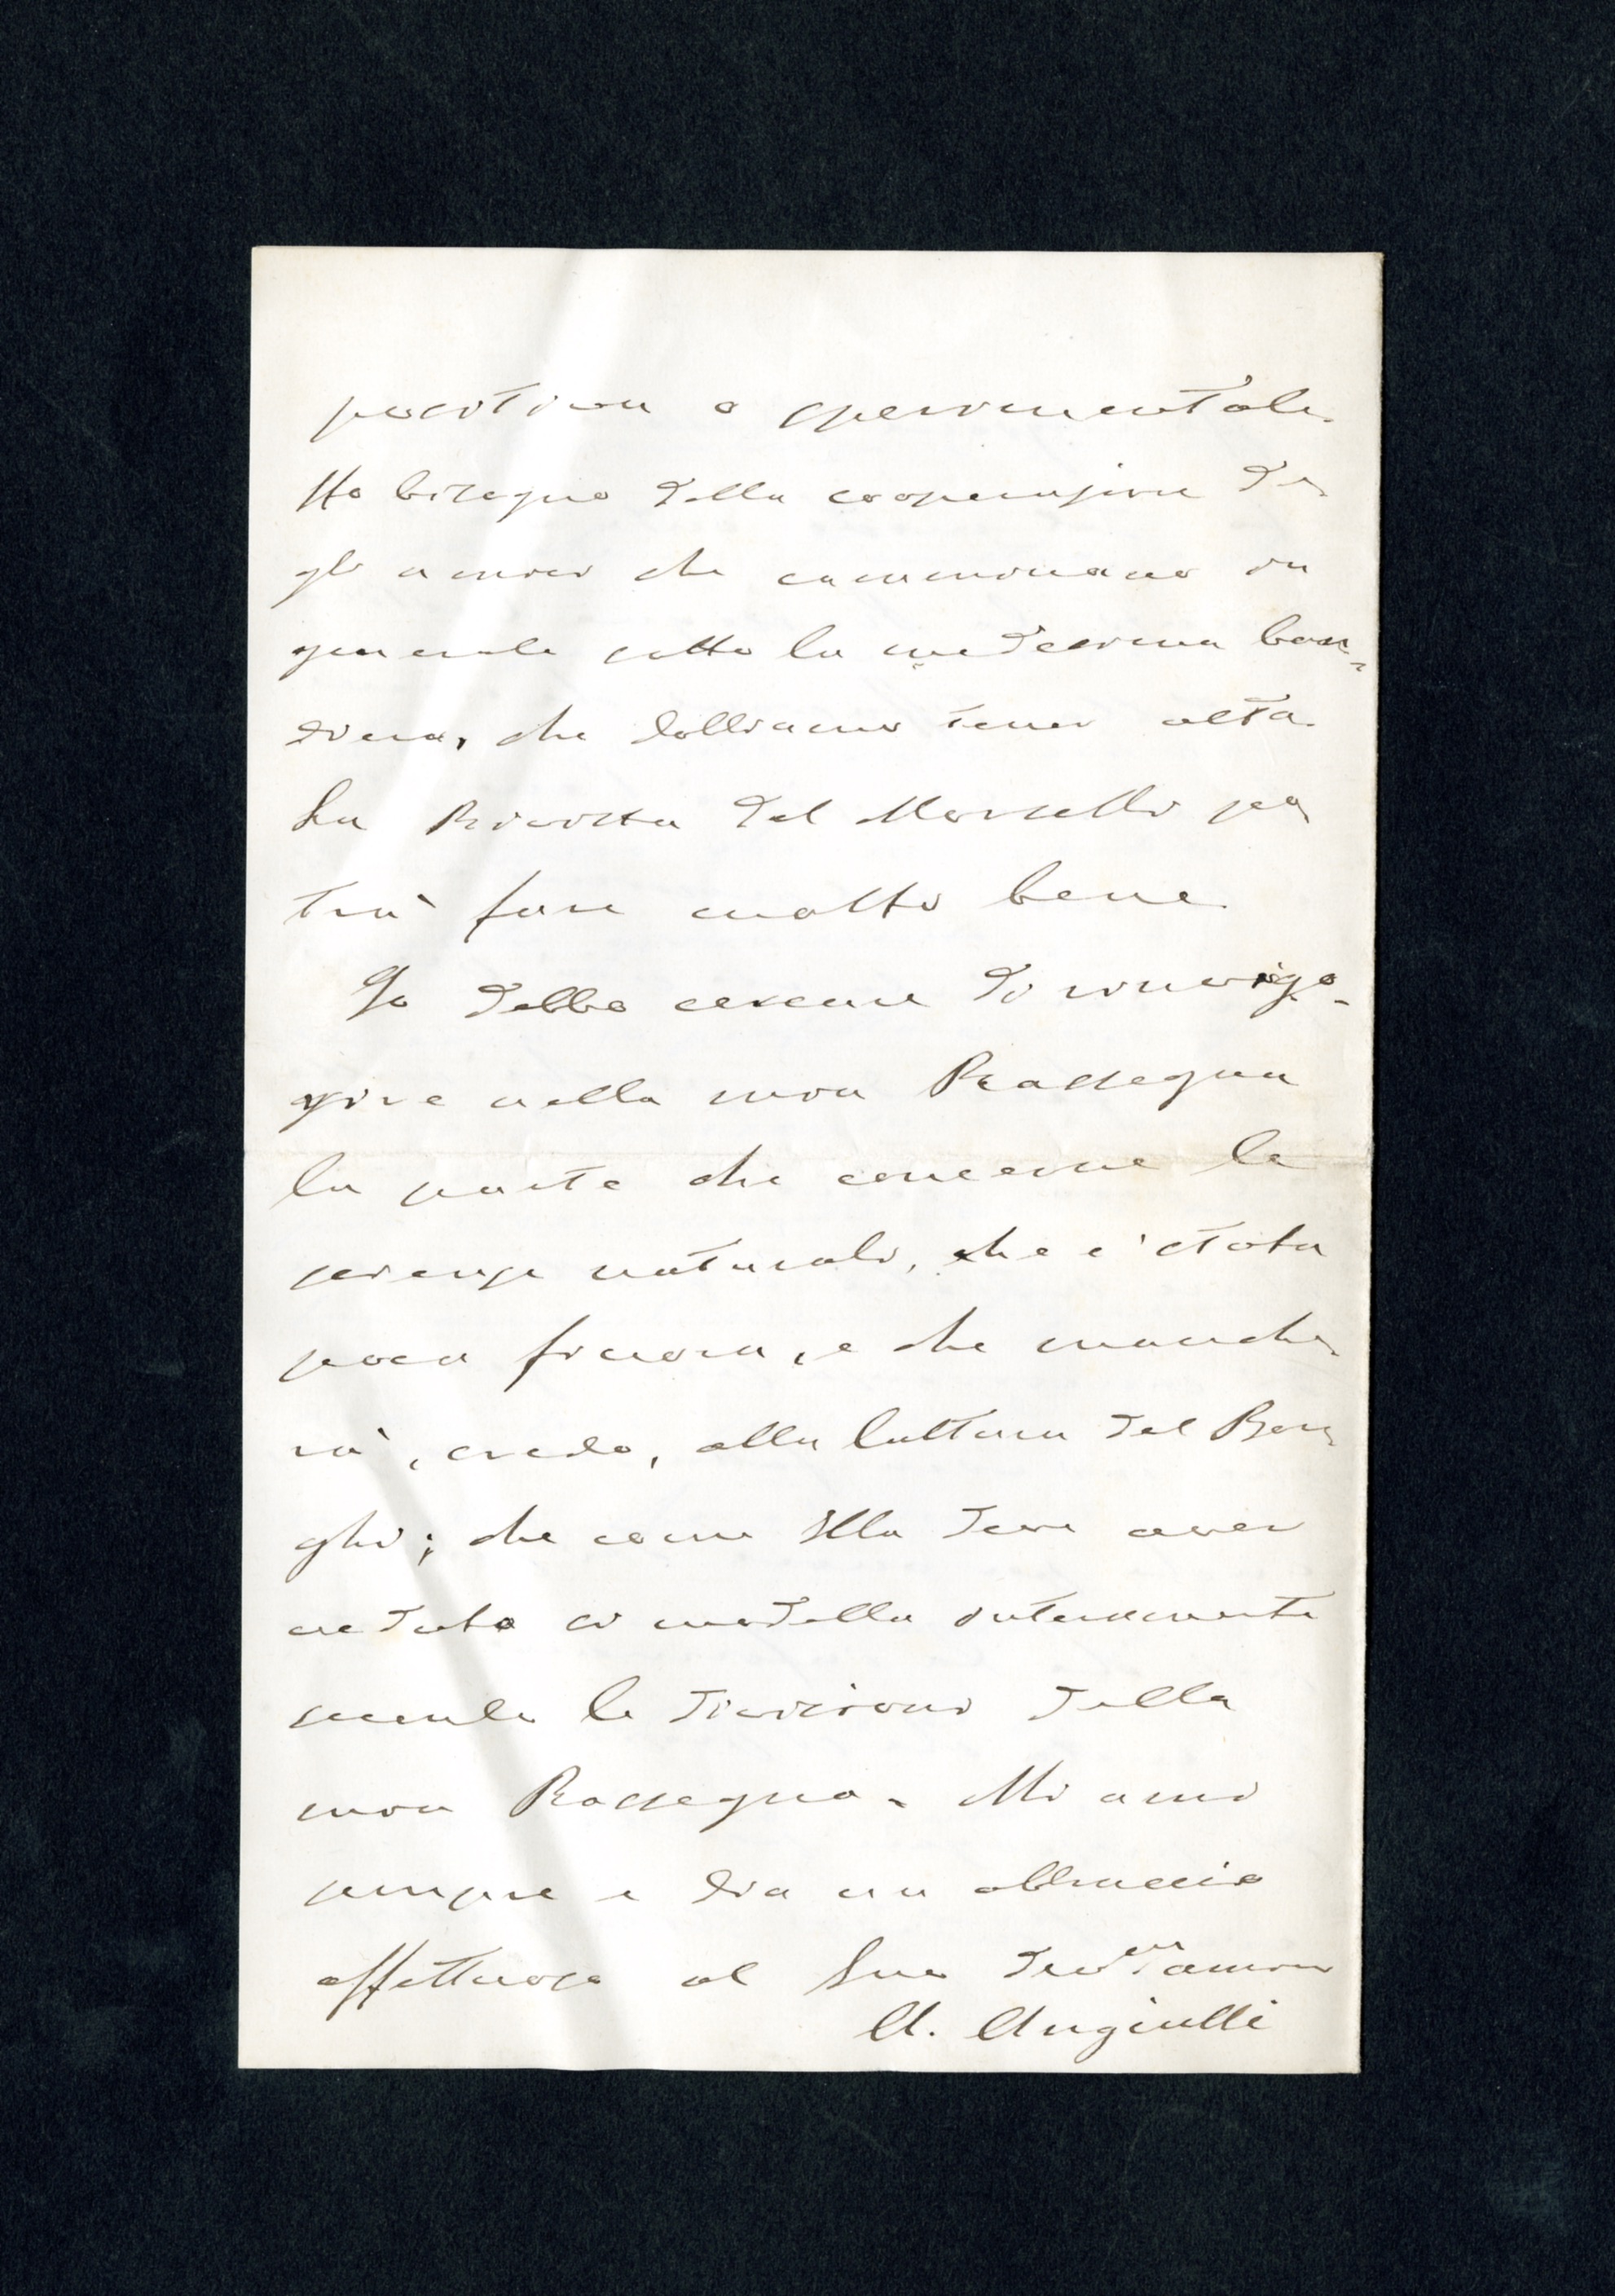 positiva o sperimentale.
Ho bisogno della cooperazione de-
gli amici che camminano in
generale sotto la medesima ban-
diera, che dobbiamo tener alta.
La Rivista del Morselli po-
trà fare molto bene.
Io debbo cercare di rinvigo-
rire nella mia Rassegna
la parte che concerne le
scienze naturali, che è stata
poca finora, e che manche-
rà, credo, alla Cultura del Bon-
ghi; che come Ella deve aver
veduto si modella interamente
secondo le divisioni della
mia Rassegna. Mi ami
sempre e dia un abbraccio
affettuoso al Suo dev.mo amico
A. Angiulli